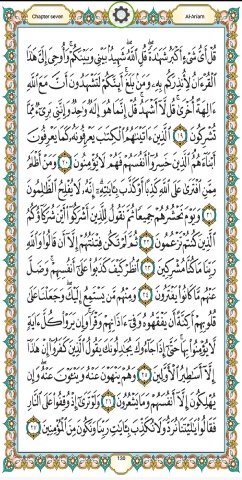 Chapter seven
Al-An'am
قُلْ أَىُّ شَىْءٍ أَكْبَرُ شَهَٰدَةً قُلِ ٱللَّهُ شَهِيدٌۢ بَيْنِى وَبَيْنَكُمْ وَأُوحِىَ إِلَىَّ هَٰذَا
ٱلْقُرْءَانُ لِأُنذِرَكُم بِهِۦ وَمَنۢ بَلَغَ أَئِنَّكُمْ لَتَشْهَدُونَ أَنَّ مَعَ ٱللَّهِ
ءَالِهَةً أُخْرَىٰ قُل لَّآ أَشْهَدُ قُلْ إِنَّمَا هُوَ إِلَٰهٌ وَٰحِدٌ وَإِنَّنِى بَرِىٓءٌ مِّمَّا
تُشْرِكُونَ ١٩ ٱلَّذِينَ ءَاتَيْنَٰهُمُ ٱلْكِتَٰبَ يَعْرِفُونَهُۥ كَمَا يَعْرِفُونَ
أَبْنَآءَهُمُ ٱلَّذِينَ خَسِرُوٓا۟ أَنفُسَهُمْ فَهُمْ لَا يُؤْمِنُونَ ٢٠ وَمَنْ أَظْلَمُ
مِمَّنِ ٱفْتَرَىٰ عَلَى ٱللَّهِ كَذِبًا أَوْ كَذَّبَ بِـَٔايَٰتِهِۦٓ إِنَّهُۥ لَا يُفْلِحُ ٱلظَّٰلِمُونَ
٢١ وَيَوْمَ نَحْشُرُهُمْ جَمِيعًا ثُمَّ نَقُولُ لِلَّذِينَ أَشْرَكُوٓا۟ أَيْنَ شُرَكَآؤُكُمُ
ٱلَّذِينَ كُنتُمْ تَزْعُمُونَ ٢٢ ثُمَّ لَمْ تَكُن فِتْنَتُهُمْ إِلَّآ أَن قَالُوا۟ وَٱللَّهِ
رَبِّنَا مَا كُنَّا مُشْرِكِينَ ٢٣ ٱنظُرْ كَيْفَ كَذَبُوا۟ عَلَىٰٓ أَنفُسِهِمْ وَضَلَّ
عَنْهُم مَّا كَانُوا۟ يَفْتَرُونَ ٢٤ وَمِنْهُم مَّن يَسْتَمِعُ إِلَيْكَ وَجَعَلْنَا عَلَىٰ
قُلُوبِهِمْ أَكِنَّةً أَن يَفْقَهُوهُ وَفِىٓ ءَاذَانِهِمْ وَقْرًا وَإِن يَرَوْا۟ كُلَّ ءَايَةٍ
لَّا يُؤْمِنُوا۟ بِهَا حَتَّىٰٓ إِذَا جَآءُوكَ يُجَٰدِلُونَكَ يَقُولُ ٱلَّذِينَ كَفَرُوٓا۟ إِنْ هَٰذَآ
إِلَّآ أَسَٰطِيرُ ٱلْأَوَّلِينَ ٢٥ وَهُمْ يَنْهَوْنَ عَنْهُ وَيَنْـَٔوْنَ عَنْهُ وَإِن
يُهْلِكُونَ إِلَّآ أَنفُسَهُمْ وَمَا يَشْعُرُونَ ٢٦ وَلَوْ تَرَىٰٓ إِذْ وُقِفُوا۟ عَلَى ٱلنَّارِ
فَقَالُوا۟ يَٰلَيْتَنَا نُرَدُّ وَلَا نُكَذِّبَ بِـَٔايَٰتِ رَبِّنَا وَنَكُونَ مِنَ ٱلْمُؤْمِنِينَ ٢٧
130